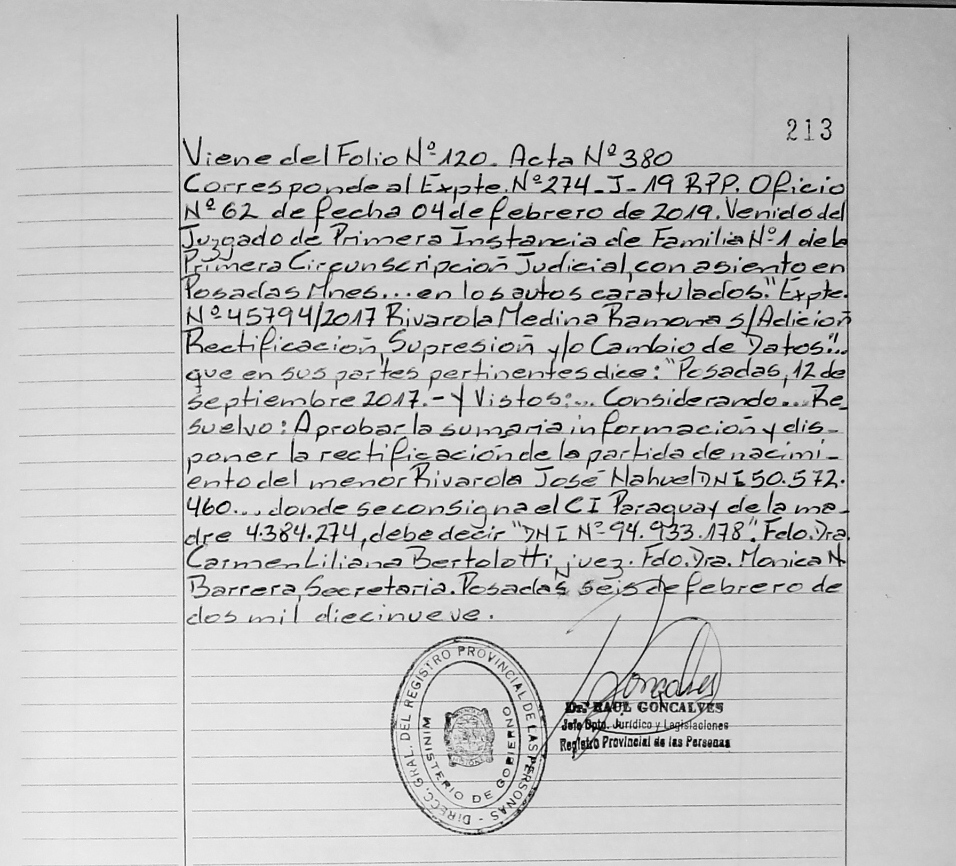 213
Viene del Folio Nº 120. Acta Nº 380
Corresponde al Expte. Nº 274-J-19 RPP. Oficio
Nº 62 de fecha 04 de febrero de 2019. Venido del
Juzgado de Primera Instancia de Familia Nº 1 de la
Primera Circunscripción Judicial, con asiento en
Posadas Mnes... en los autos caratulados: "Expte.
Nº 45794/2017 Rivarola Medina Ramona s/Adición
Rectificación, Supresión y/o Cambio de Datos"...
que en sus partes pertinentes dice: "Posadas, 12 de
septiembre 2017.- Y Vistos:... Considerando... Re-
suelvo: Aprobar la sumaria información y dis-
poner la rectificación de la partida de nacimi-
ento del menor Rivarola José Nahuel DNI 50.572.
460... donde se consigna el CI Paraguay de la ma-
dre 4.384.274, debe decir "DNI Nº 94.933.178". Fdo. Dra.
Carmen Liliana Bertolotti, juez. Fdo. Dra. Monica N
Barrera, Secretaria. Posadas seis de febrero de
dos mil diecinueve.
DIRECC. GRAL. DEL REGISTRO PROVINCIAL DE LAS PERSONAS -
MINISTERIO DE GOBIERNO
Dr. RAUL GONCALVES
Jefe Dpto. Jurídico y Legislaciones
Registro Provincial de las Personas